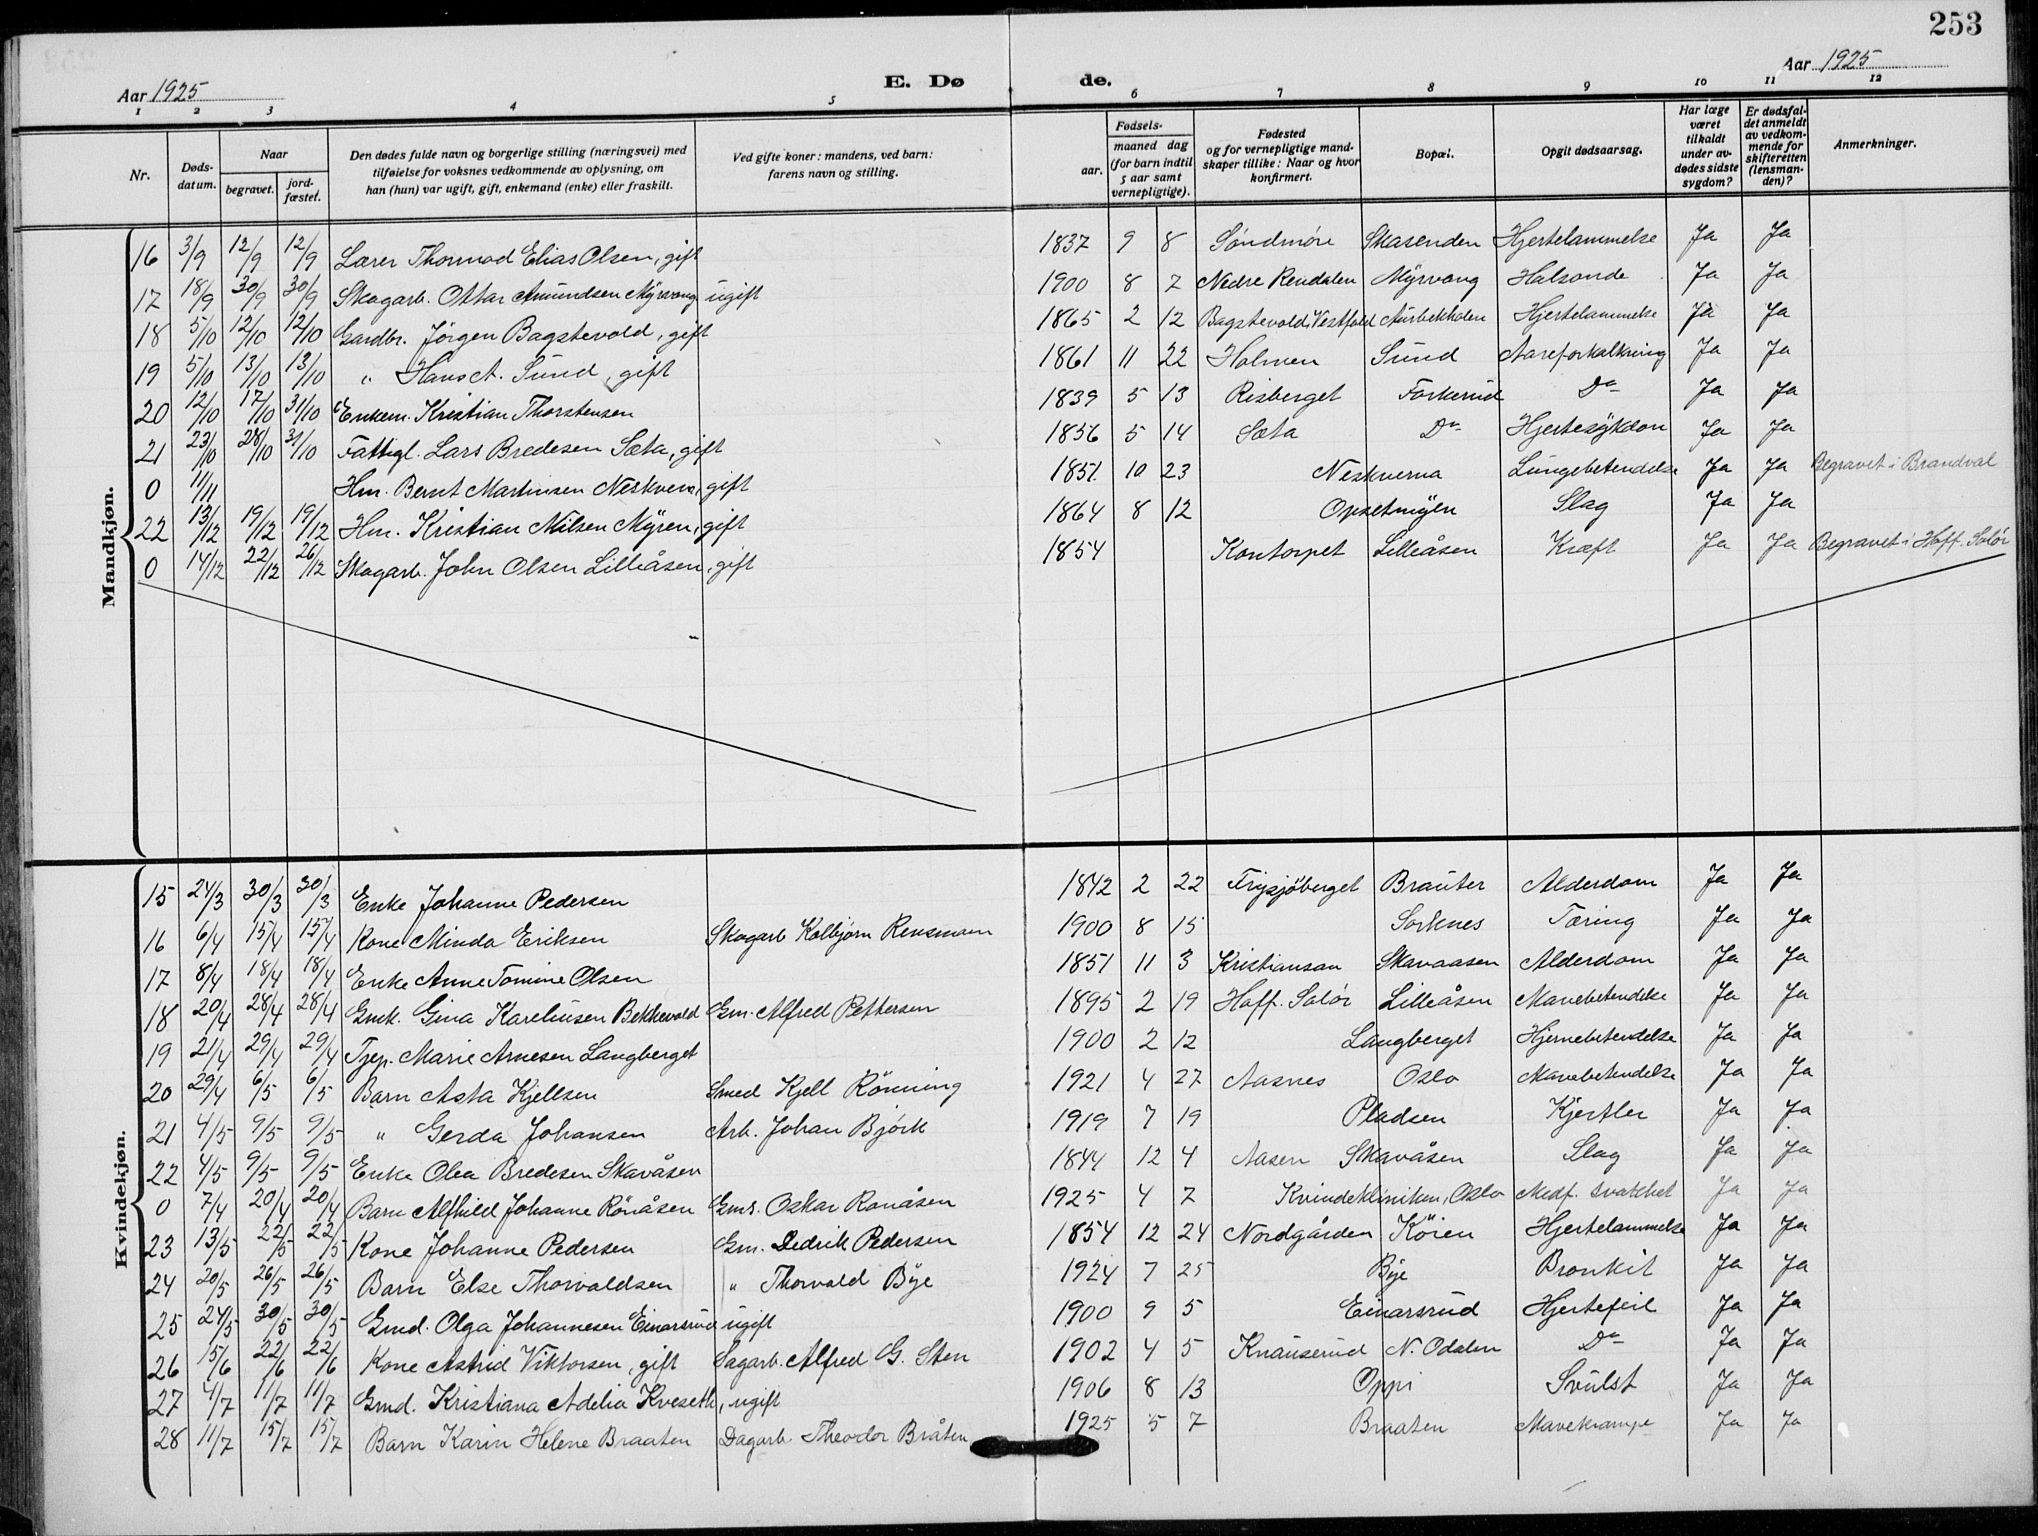 253
Aar 1925
E. Dø de.
Aar 1925
1 2 3 4 5 6 7 8 9 10 11 12
Nr.
Døds-datum.
Naar begravet. jord-fæstet.
Den dødes fulde navn og borgerlige stilling (næringsvei) med tilføielse for voksnes vedkommende av oplysning, om han (hun) var ugift, gift, enkemand (enke) eller fraskilt.
Ved gifte koner: mandens, ved barn: farens navn og stilling.
Fødsels- aar. maaned dag (for barn indtil 5 aar samt vernepligtige).
Fødested og for vernepligtige mand-skaper tillike: Naar og hvor konfirmert.
Bopæl.
Opgit dødsaarsag.
Har læge været tilkaldt under av-dødes sidste sygdom?
Er dødsfal-det anmeldt av vedkom-mende for skifteretten (lensman-den)?
Anmerkninger.
Mandkjøn.
16 3/9 12/9 12/9 Lærer Thormod Elias Olsen, gift 1837 9 8 Söndmöre Skasenden Hjertelammelse Ja Ja
17 18/9 30/9 30/9 Skogarb. Ottar Amundsen Myrvang ugift 1900 8 7 Nedre Rendalen Myrvang Halsonde Ja Ja
18 5/10 12/10 12/10 Gardbr. Jørgen Bagstevold, gift 1865 2 12 Bagstevold, Vestfold Aurbekkholen Hjertelammelse Ja Ja
19 5/10 13/10 13/10 " Hans A. Sund, gift 1861 11 22 Holmen Sund Aareforkalkning Ja Ja
20 12/10 17/10 31/10 Enkem. Kristian Thorstensen 1839 5 13 Risberget Forkerud Do Ja Ja
21 23/10 28/10 31/10 Fattigl. Lars Bredesen Sæta, gift 1856 5 14 Sæta Do Hjertesykdom Ja Ja
0 11/11 Hm. Bernt Martinsen Neskvern, gift 1851 10 23 Neskverna Lungebetendelse Ja Ja Begravet i Brandval
22 13/12 19/12 19/12 Hm. Kristian Nilsen Myren, gift 1864 8 12 Opsetmyren Slag Ja Ja
0 14/12 22/12 26/12 Skogarb. John Olsen Lilleåsen, gift 1854 Kontorpet Lilleåsen Kræft Ja Ja Begravet i Hoff. Solör
Kvindekjøn.
15 24/3 30/3 30/3 Enke Johanne Pedersen 1842 2 22 Frysjöberget Brauter Alderdom Ja Ja
16 6/4 15/4 15/4 Kone Minda Eriksen Skogarb Kolbjørn Rensmoen 1900 8 15 Sorknes Tæring Ja Ja
17 8/4 18/4 18/4 Enke Anne Tomine Olsen 1851 11 3 Kristiansan Skavaasen Alderdom Ja Ja
18 20/4 28/4 28/4 Gmk. Gina Karelinsen Bekkevold Gm. Alfred Pettersen 1895 2 19 Hoff. Solör Lilleåsen Mavebetendelse Ja Ja
19 21/4 29/4 29/4 Tjep. Marie Arnesen Langberget 1900 2 12 Langberget Hjernebetendelse Ja Ja
20 29/4 6/5 6/5 Barn Asta Kjellsen Smed Kjell Rönning 1921 4 27 Aasnes Oslo Mavebetendelse Ja Ja
21 4/5 9/5 9/5 " Gerda Johansen Arb. Johan Björk 1919 7 19 Pladsen Kjertler Ja Ja
22 4/5 9/5 9/5 Enke Olea Bredesen Skavåsen 1844 12 4 Aasen Skavåsen Slag Ja Ja
0 7/4 20/4 20/4 Barn Alfhild Johanne Rönåsen Gms. Oskar Ronåsen 1925 4 7 Kvindekliniken, Oslo Medf. svakhet Ja Ja
23 13/5 22/5 22/5 Kone Johanne Pedersen Gm. Dedrik Pedersen 1854 12 24 Nordgården Köien Hjertelammelse Ja Ja
24 20/5 26/5 26/5 Barn Else Thorvaldsen " Thorvald Bye 1924 7 25 Bye Bronkit Ja Ja
25 24/5 30/5 30/5 Gmd. Olga Johannesen Einarsrud ugift 1900 9 5 Einarsrud Hjertefeil Ja Ja
26 15/6 22/6 22/6 Kone Astrid Viktorsen, gift Sagarb. Alfred G. Sten 1902 4 5 Knauserud N. Odalen Do Ja Ja
27 4/7 11/7 11/7 Gmd. Kristiana Adelia Kveseth, ugift 1906 8 13 Oppi Svulst Ja Ja
28 11/7 15/7 15/7 Barn Karin Helene Braaten Dagarb. Theodor Bråten 1925 5 7 Braaten Mavekrampe Ja Ja